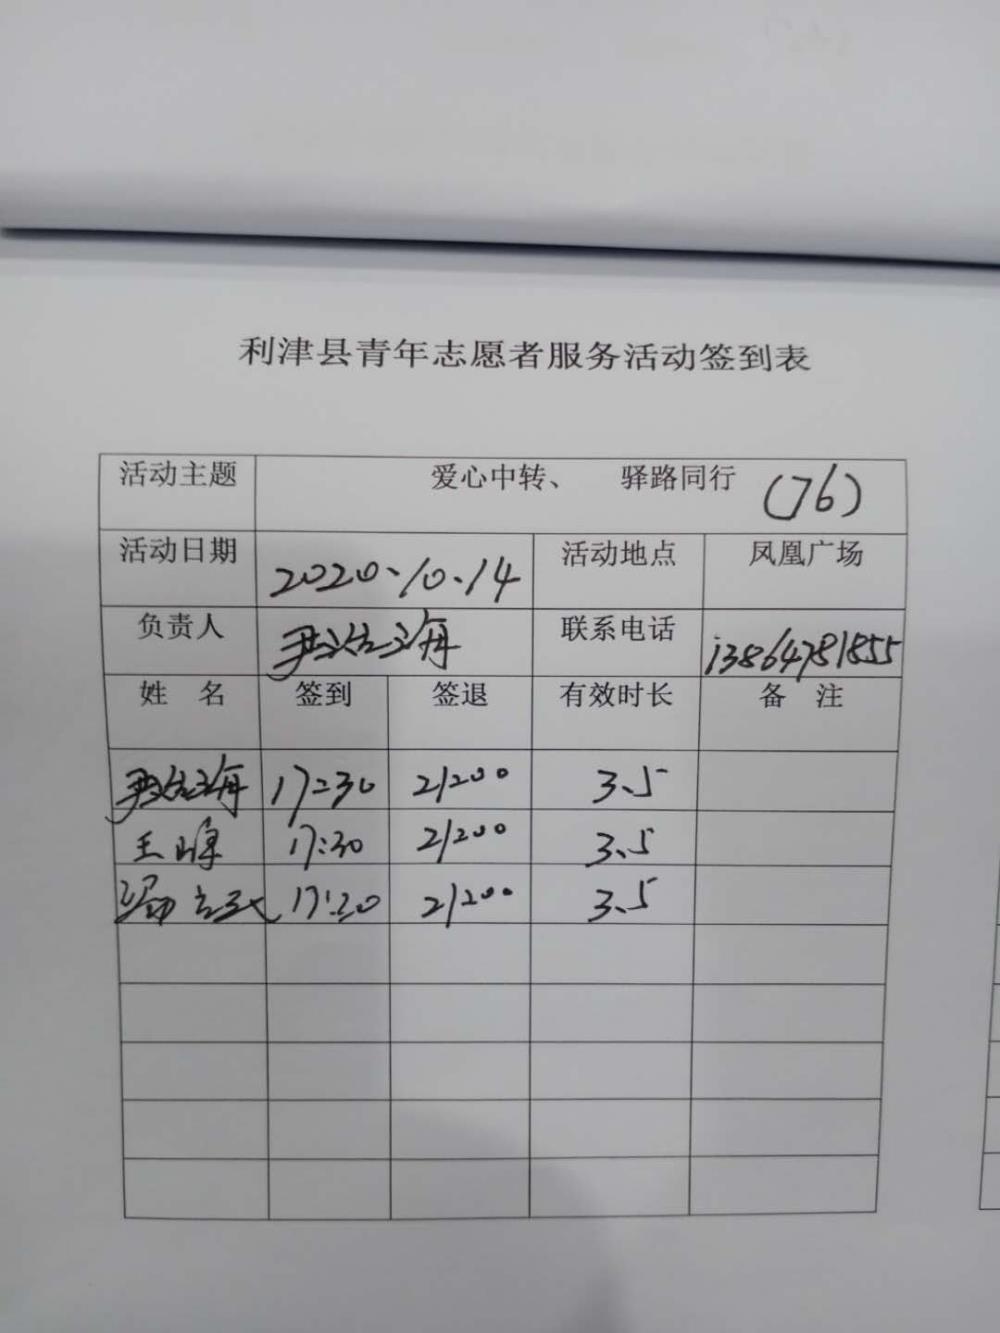 利津县青年志愿者服务活动签到表
活动主题 爱心中转、 驿路同行 (76)
活动日期 2020.10.14 活动地点 凤凰广场
负责人 尹治海 联系电话 13864781855
姓 名 签到 签退 有效时长 备 注
尹治海 17:30 21:00 3.5
王峰 17:30 21:00 3.5
17:30 21:00 3.5